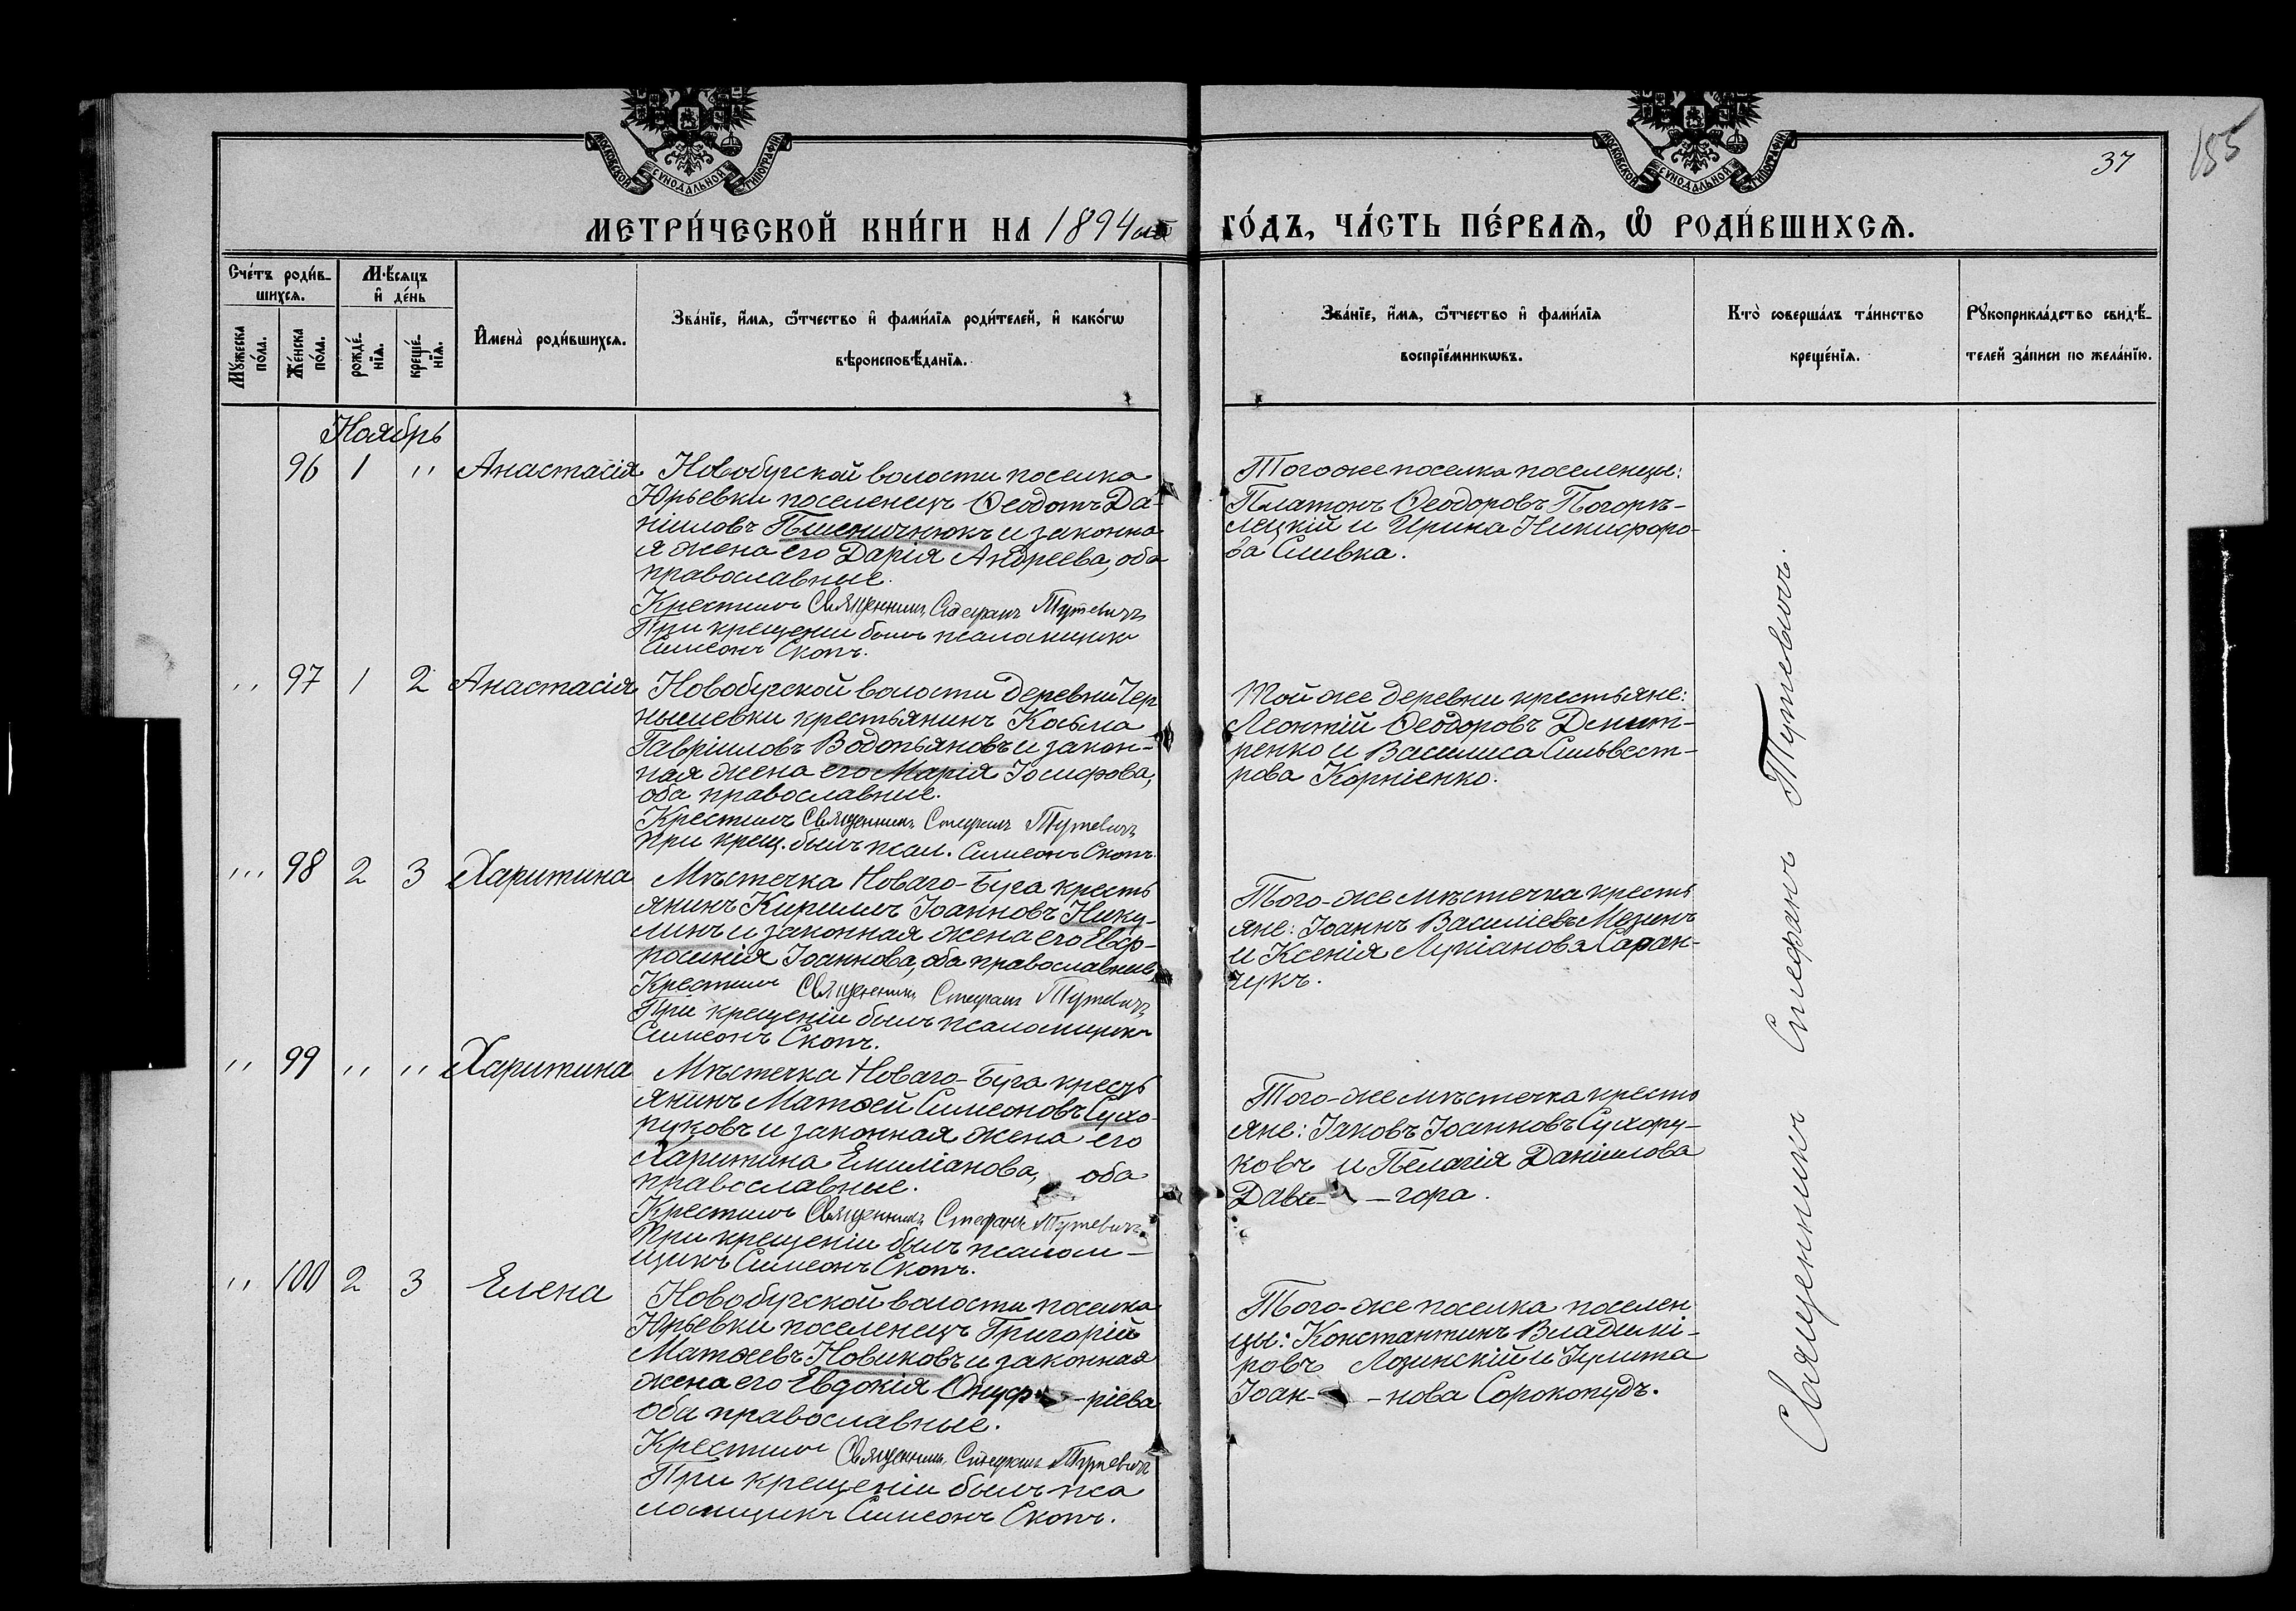 МОСКОВСКОЙ СѴНОДАЛЬНОЙ ТИПОГРАФІИ
МОСКОВСКОЙ СѴНОДАЛЬНОЙ ТИПОГРАФІИ
37
155
МЕТРИ́ЧЕСКОЙ КНИ́ГИ НА 1894ый ГО́ДЪ, ЧА́СТЬ ПЕ́РВАѦ, Ѿ РОДИ́ВШИХСѦ.
Сче́тъ роди́в-
шихсѧ.
Мꙋ́жеска по́ла.
Же́нска по́ла.
Мѣ́сѧцъ и҆ де́нь
рожде́нїѧ.
креще́нїѧ.
И҆мена̀ роди́вшихсѧ.
Зва́нїе, и҆́мѧ, ѻ҆́тчество и҆ фами́лїѧ роди́телей, и҆ како́гѡ
вѣроисповѣ́данїѧ.
Зва́нїе, и҆́мѧ, ѻ҆́тчество и҆ фами́лїѧ
воспрїе́мникѡвъ.
Кто̀ соверша́лъ та́инство
креще́нїѧ.
Рꙋкоприкла́дство свидѣ́-
телей за́писи по жела́нїю.
Ноябрь
96 1 " Анастасія
Новобугской волости поселка
Юрьевки поселенецъ Ѳеодотъ Да-
ніиловъ Пшеничнюкъ и законна
я жена его Дарія Андреева, оба
православные.
Крестилъ Священникъ Стефанъ Тутевичъ
При крещеніи былъ псаломщикъ
Симеонъ Скопъ.
Того же поселка поселенцы:
Платонъ Ѳеодоровъ Погорѣ-
лецкій и Ирина Никифоро-
ва Сливка.
" 97 1 2 Анастасія
Новобугской волости деревни Чер
нышевки крестьянинъ Косьма
Гавріиловъ Водопьяновъ и закон-
ная жена его Марія Іосифова,
оба православные.
Крестилъ Священникъ Стефанъ Тутевичъ
При крещ. былъ псал. Симеонъ Скопъ.
Той же деревни крестьяне:
Леонтій Ѳеодоровъ Дмит-
ренко и Василиса Сильвест-
рова Корніенко.
" 98 2 3 Харитина
Мѣстечка Новаго-Буга кресть
янинъ Кириллъ Іоанновъ Нику-
линъ и законная жена его Евф-
росинія Іоаннова, оба православные.
Крестилъ Священникъ Стефанъ Тутевичъ
При крещеніи былъ псаломщикъ
Симеонъ Скопъ.
Того-же мѣстечка кресть
яне: Іоаннъ Василіевъ Мезинъ
и Ксенія Лукіанова Саран-
чукъ.
" 99 " " Харитина
Мѣстечка Новаго-Буга кресть
янинъ Матѳей Симеоновъ Сухо-
руковъ и законная жена его
Харитина Емиліанова, оба
православные.
Крестилъ Священникъ Стефанъ Тутевичъ.
При крещеніи былъ псалом-
щикъ Симеонъ Скопъ.
Того-же мѣстечка кресть
яне: Іаковъ Іоанновъ Сухору-
ковъ и Пелагія Даніилова
Дави- -гора.
" 100 2 3 Елена
Новобугской волости поселка
Юрьевки поселенецъ Григорій
Матѳеевъ Новиковъ и законная
жена его Евдокія Онуф -ріева
оба православные.
Крестилъ Священникъ Стефанъ Тутевичъ
При крещеніи былъ пса
ломщикъ Симеонъ Скопъ.
Того-же поселка поселен
цы: Константинъ Владимі-
ровъ Лозинскій и Іулита
Іоан- -нова Сорокопудъ.
Священникъ Стефанъ Тутевичъ.